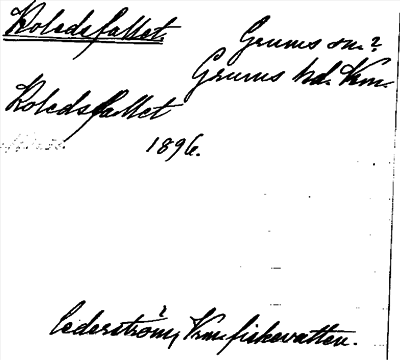 Kolsdsfallet. Grums sn.?
Grums hd. Vrm.
Kolsdsfallet
1896.
Cederström, Vrm. fiskevatten.